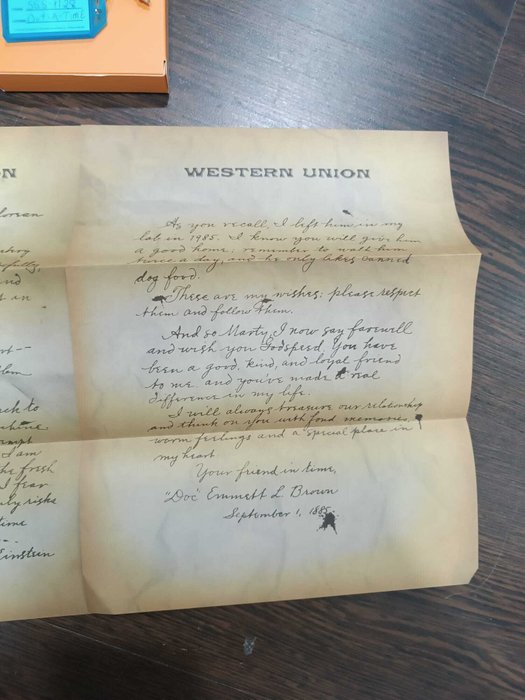 SGS 1/28
OUT-A-TIME
N
lorean
stroy
and
st in
rt--
blem
ack to
chine
empt
I am
the fresh
I fear
risks
time
Einstein
WESTERN UNION
As you recall, I left him in my
lab in 1985. I know you will give him
a good home; remember to walk him
twice a day, and he only likes canned
dog food.
These are my wishes: please respect
them and follow them.
And so Marty, I now say farewell
and wish you Godspeed. You have
been a good, kind, and loyal friend
to me, and you've made a real
difference in my life.
I will always treasure our relationship
and think on you with fond memories,
warm feelings and a special place in
my heart.
Your friend in time,
"Doc" Emmett L. Brown
September 1, 1885